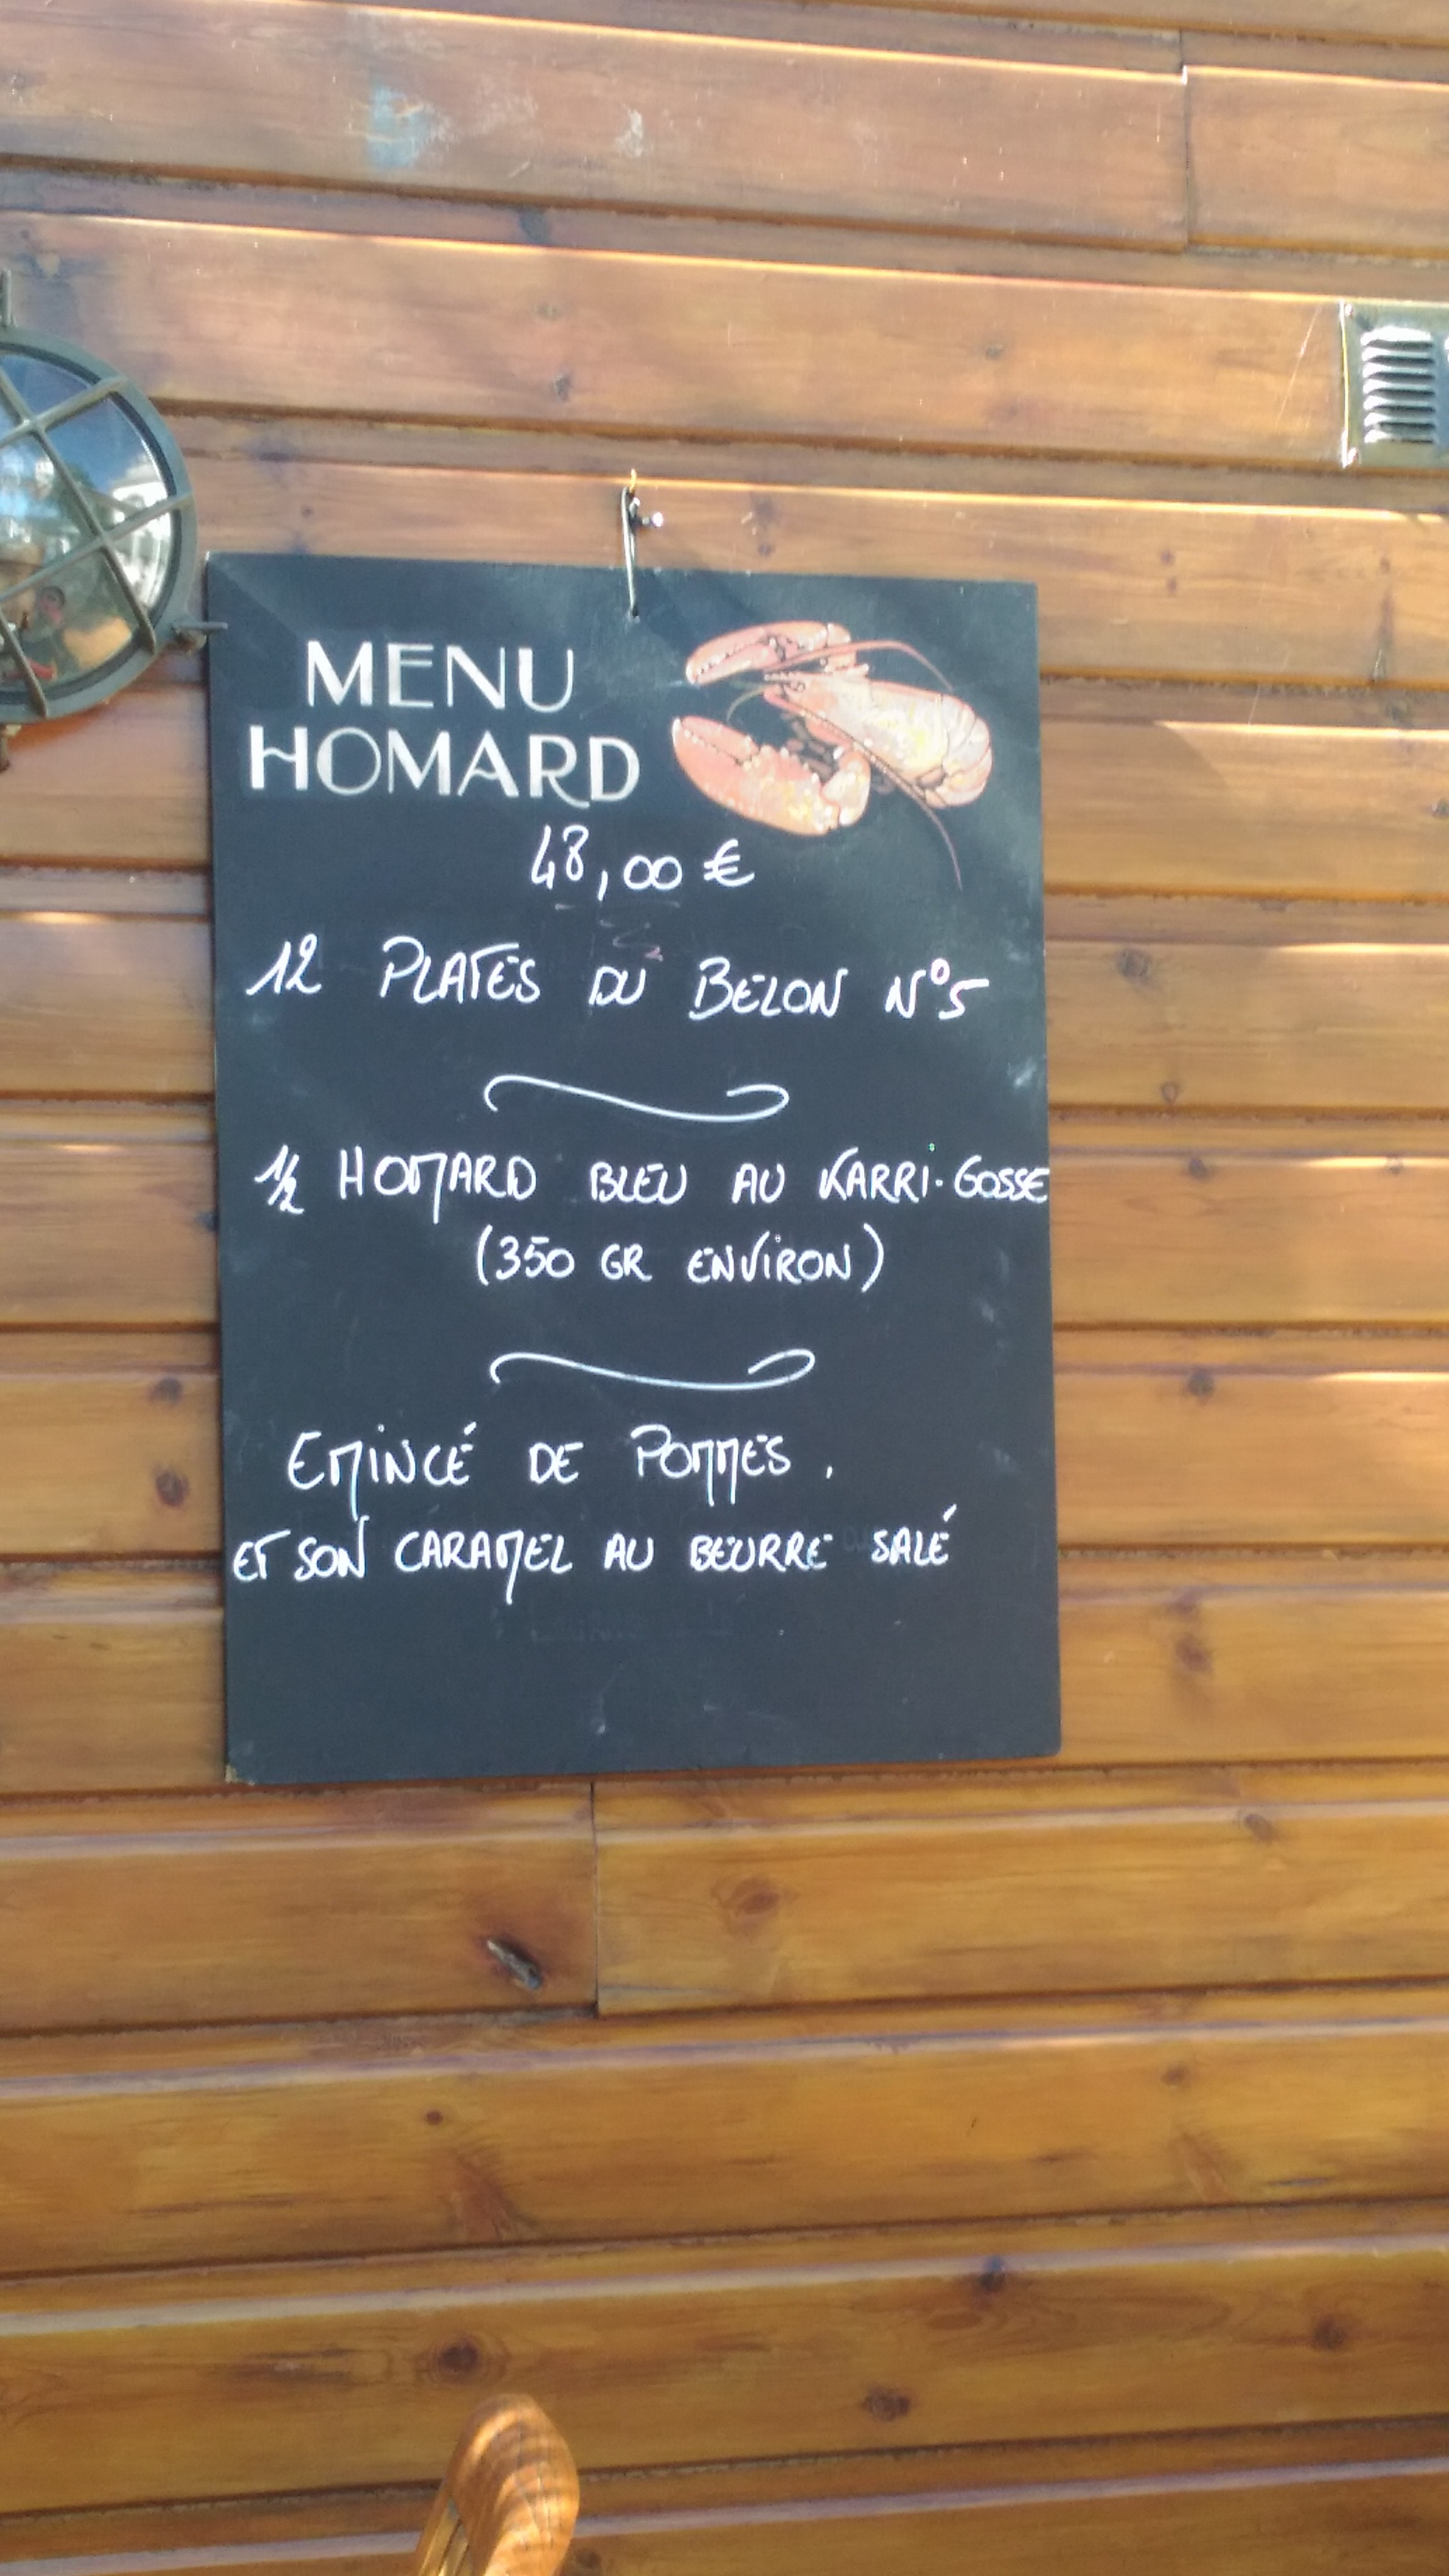 MENU
HOMARD
48,00 €
12 PLATES DU BELON N°5
1/2 HOMARD BLEU AU KARRI-GOSSE
(350 GR ENVIRON)
EMINCÉ DE POMMES.
ET SON CARAMEL AU BEURRE SALÉ